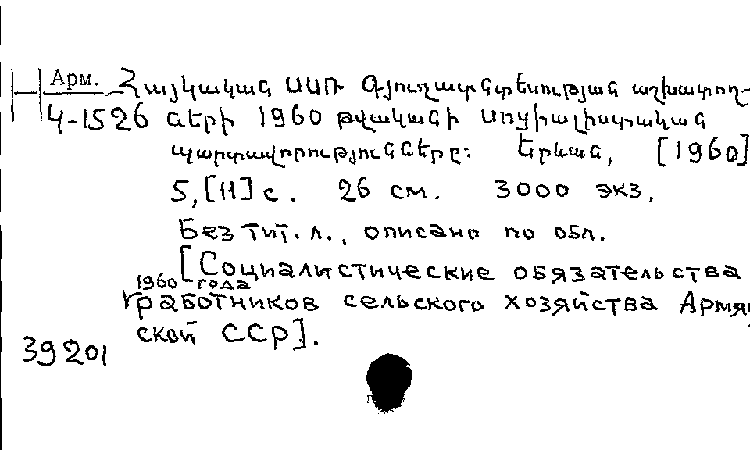 Арм. Հայկական ՍՍՌ Գյուղատնտեսության աշխատող-
4-1526 ների 1960 թվականի սոցիալիստական
պարտավորությունները: Երևան, [1960]
5, [11] с. 26 см. 3000 экз.
Без тит. л., описано по обл.
[Социалистические обязательства
1960 года
работников сельского хозяйства Армян
ской ССР].
39201